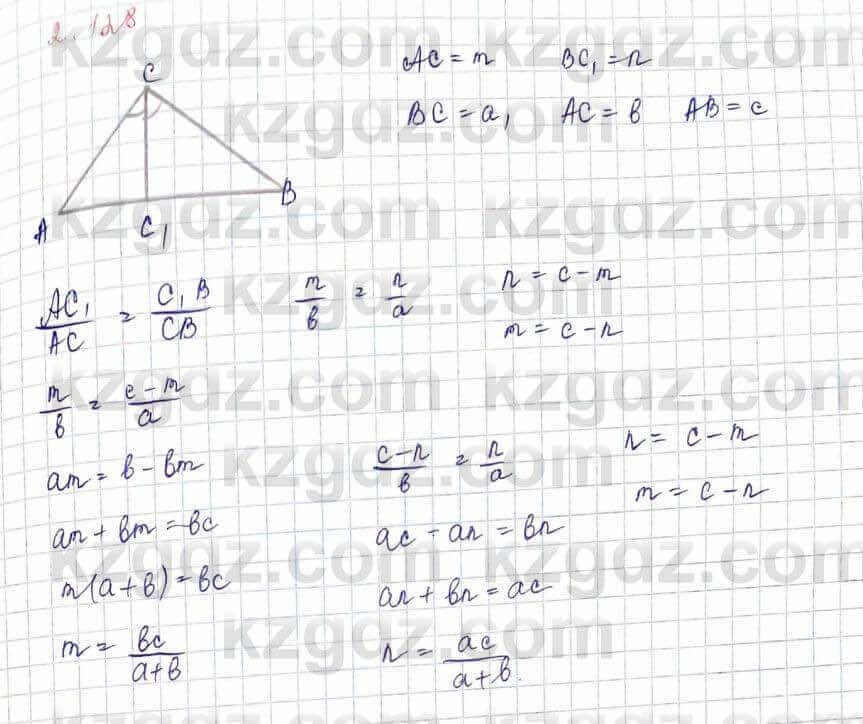 2.128
AC = m BC₁ = n
BC = a, AC = b AB = c
C
A C₁ B
AC₁/AC = C₁B/CB m/b = n/a n = c - m
m = c - n
m/b = c - m/a
am = b - bm c - n/b = n/a n = c - m
m = c - n
am + bm = bc ac - an = bn
m(a + b) = bc an + bn = ac
m = bc/a + b n = ac/a + b
kzgdz.com